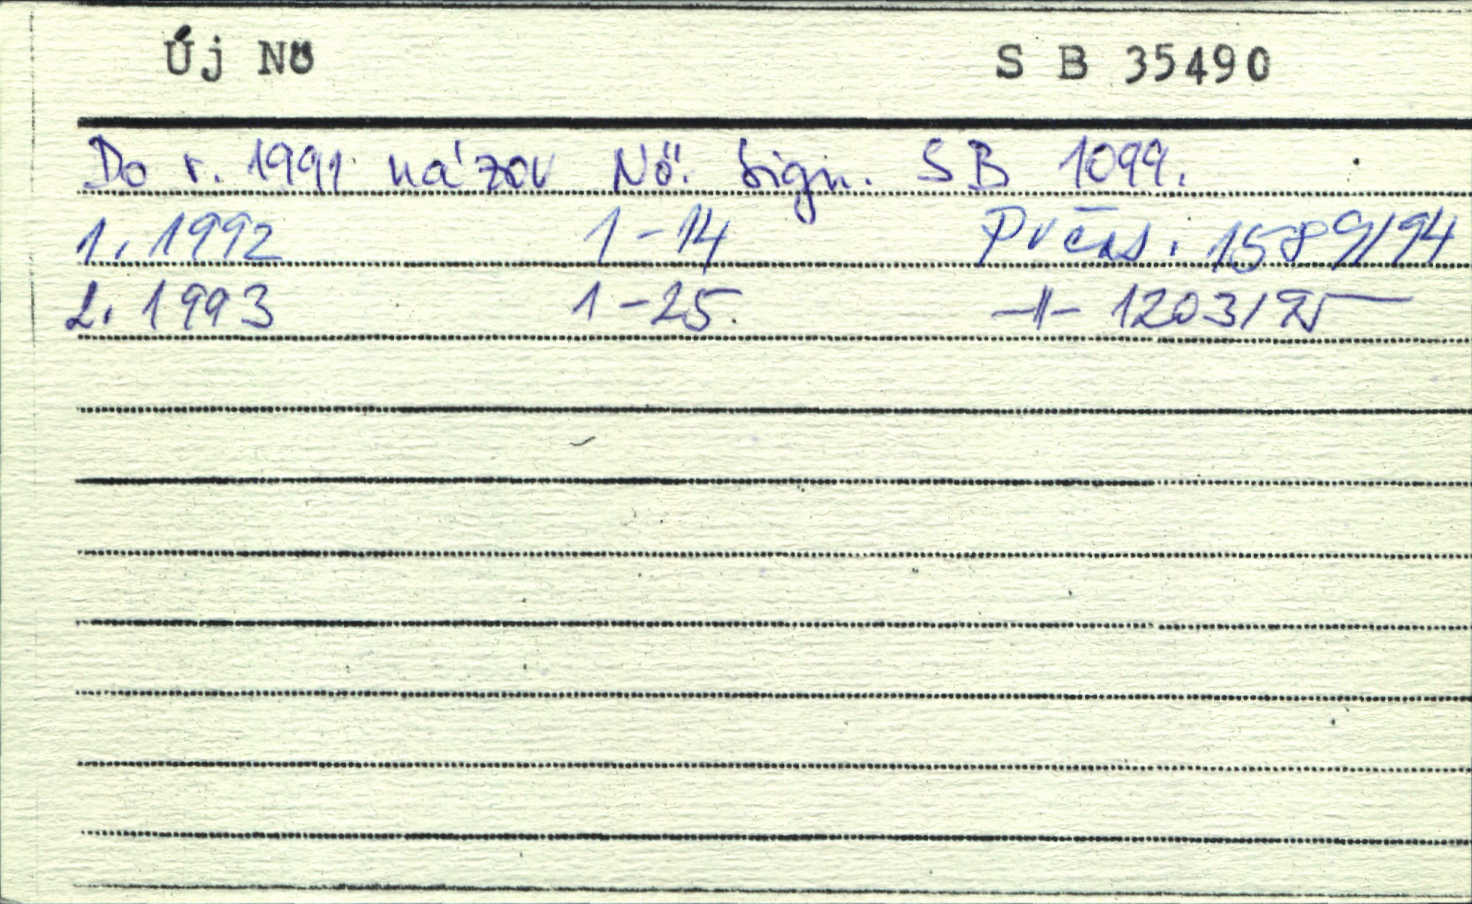 Új Nő S B 35490
Do r. 1991 názov Nő. Sign. SB 1099.
1. 1992 1-14 Pr čas. 1589/94
2. 1993 1-25. -"- 1203/95